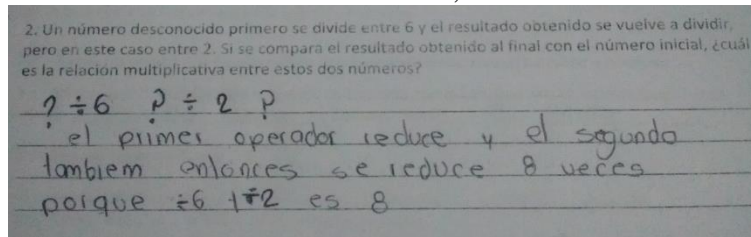 2. Un número desconocido primero se divide entre 6 y el resultado obtenido se vuelve a dividir,
pero en este caso entre 2. Si se compara el resultado obtenido al final con el número inicial, ¿cuál
es la relación multiplicativa entre estos dos números?
? ÷6 ? ÷ 2 ?
el primer operador reduce y el segundo
tambiem entonces se reduce 8 veces
porque ÷6 +÷2 es 8